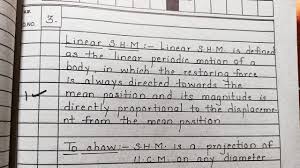 3.
Linear S.H.M :- Linear S.H.M. is defined
as the linear periodic motion of a
body, in which the restoring force
is always directed towards the
mean position and its magnitude is
directly proportional to the displaceme-
nt from the mean position
To show :- S.H.M. is a projection of
U.C.M. on any diameter